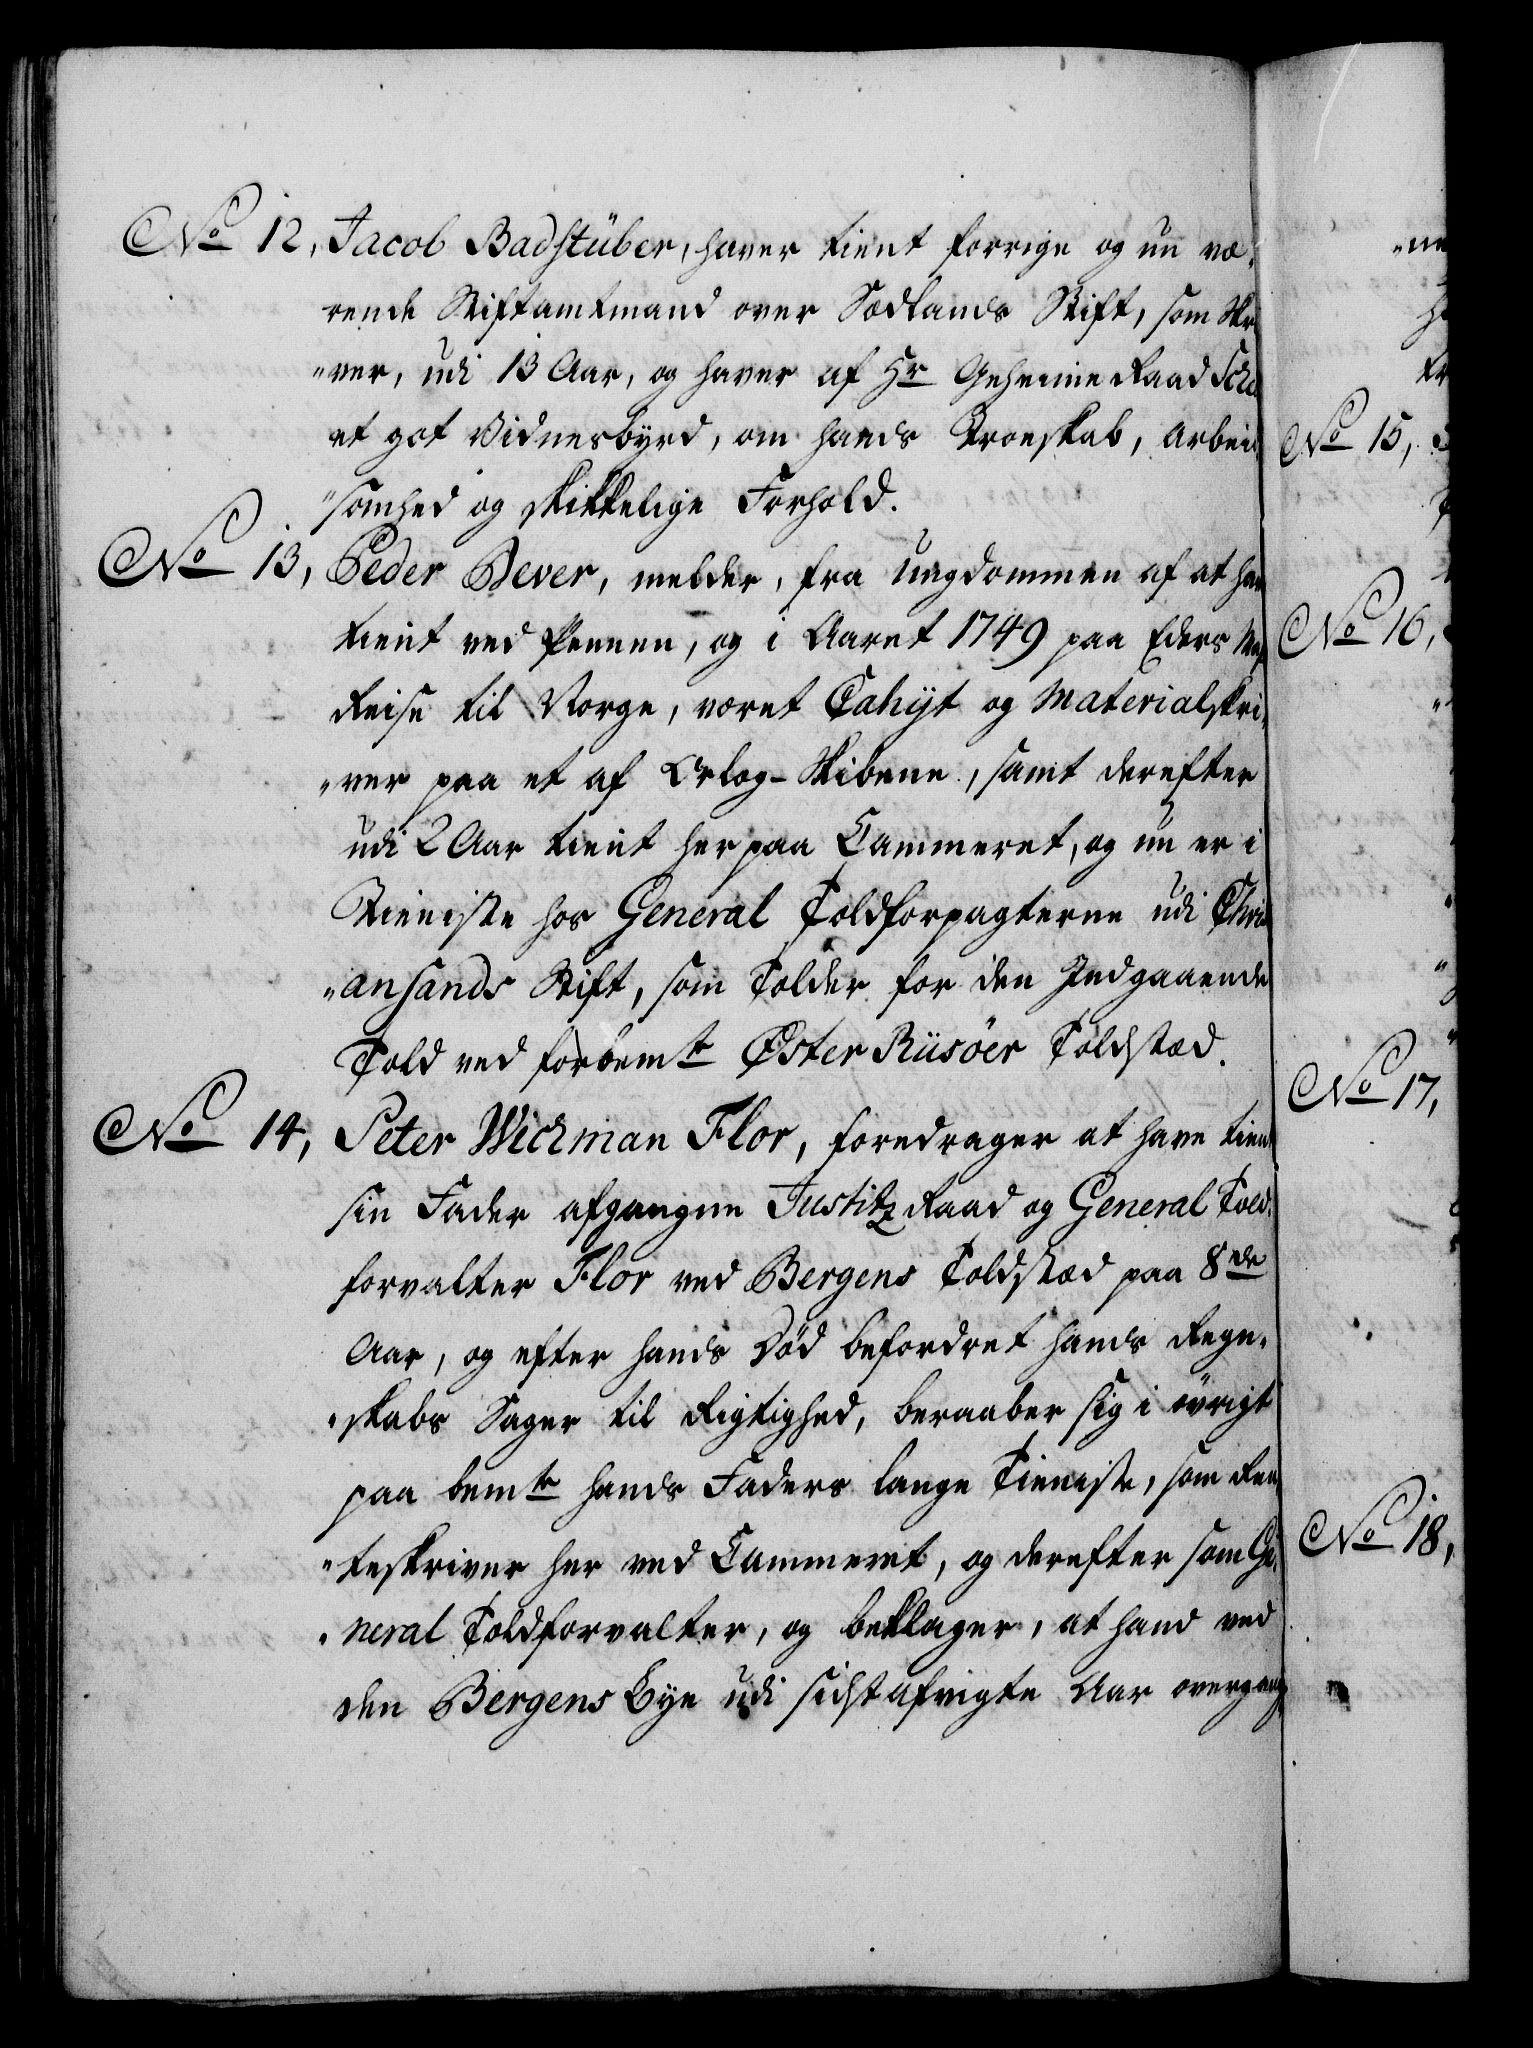 No 12, Jacob Badstüber, haver tient forrige og nu væ-
rende Stiftamtmand over Siælands Stift, som Skri
"ver, udi 13 Aar, og haver af Hr Geheime Raad
et got Vidnesbyrd, om hands Troeskab, Arbeid
"somhed og skikkelige Forhold.
No 13, Peder Bever, melder, fra Ungdommen af at have
tient ved Pennen, og i Aaret 1749 paa Eders May
Reise til Norge, været Cahyt og Materialskri-
"ver paa et af Orlog-Skibene, samt derefter
udi 2 Aar tient her paa Cammeret, og nu er i
Tieniste hos General Toldforpagterne udi Chri
"ansands Stift, som Tolder for den Indgaaende
Told ved forbemte Øster Riisöer Toldstæd.
No 14, Peter Wichman Flor, foredrager at have tient
sin Fader afgangne Justitz Raad og General Told-
forvalter Flor ved Bergens Toldstæd paa 8de
Aar, og efter hands Död befordret hands Regn-
"skabs Sager til Rigtighed, beraaber sig i övrigt
paa bemte hands Faders lange Tieniste, som Ren
"teskriver her ved Cammeret, og derefter som Ge-
"neral Toldforvalter, og beklager, at hand ved
den Bergens Bye udi sidst afvigte Aar overgang
No 15,
No 16,
No 17,
No 18,